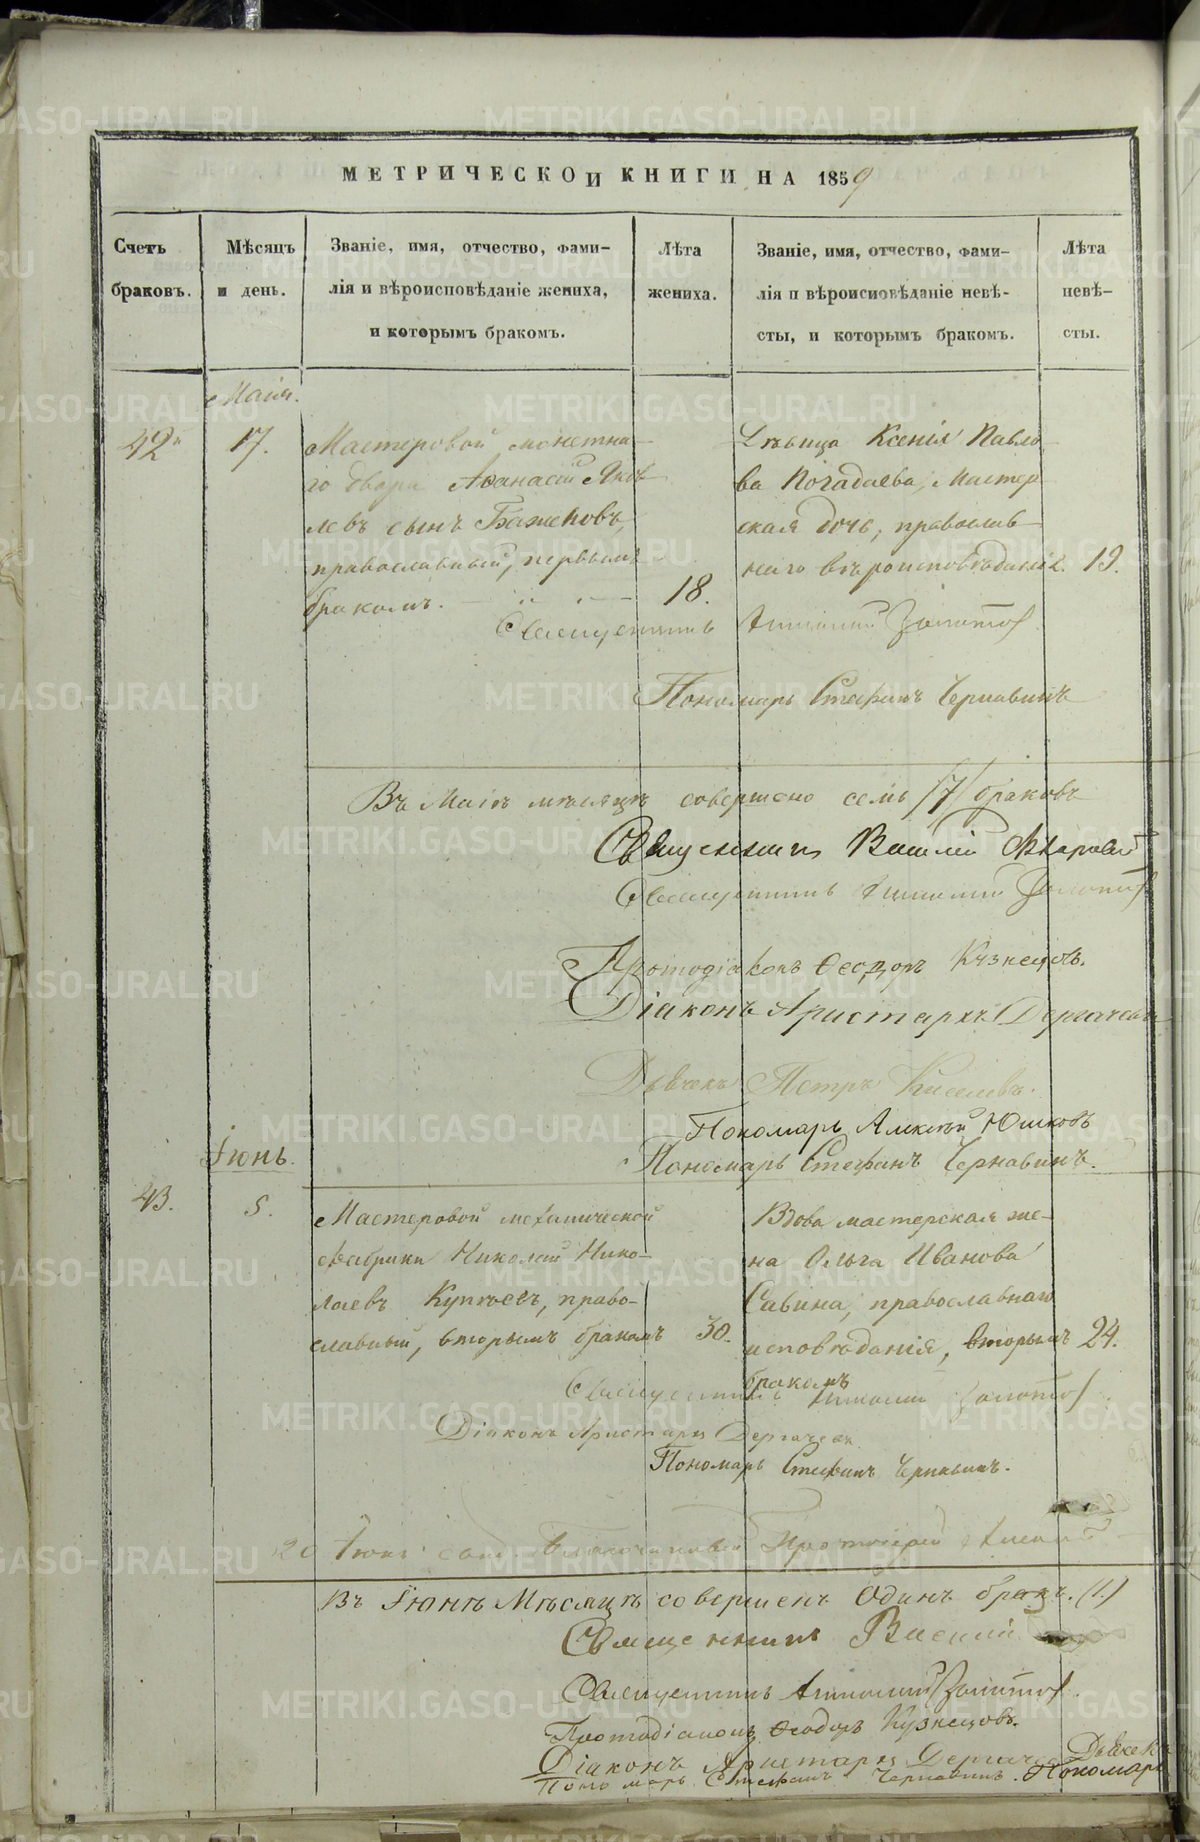 МЕТРИЧЕСКОЙ КНИГИ НА 1859
Счетъ браковъ.
Мѣсяцъ и день.
Званіе, имя, отчество, фами-
лія и вѣроисповѣданіе жениха,
и которымъ бракомъ.
Лѣта
жениха.
Званіе, имя, отчество, фами-
лія и вѣроисповѣданіе невѣ-
сты, и которымъ бракомъ.
Лѣта
невѣ-
сты.
Маія.
42
17.
Мастеровой монетна-
го двора Аѳанасій Яков-
левъ сынъ Баженовъ,
православный, первымъ
бракомъ.
18.
Дѣвица Ксенія Павло-
ва Погадаева, Мастер-
ская дочь, православ-
наго вѣроисповѣданія.
19.
Священникъ
Пономарь Стефанъ Чернавинъ
Въ Маіѣ мѣсяцѣ совершено семь /7/ браковъ
Священникъ Василій
Священникъ
Протодіаконъ Ѳеодоръ Кузнецовъ.
Діаконъ Аристархъ Дергачевъ
Дьячекъ Петръ Киселевъ.
Пономарь Алексѣй Юшковъ
Пономарь Стефанъ Чернавинъ.
Іюнь.
43.
5.
Мастеровой механической
фабрики Николай Нико-
лаевъ православный, вторымъ бракомъ
30.
Вдова мастерская же-
на Ольга Иванова
Савина, православнаго
исповѣданія, вторымъ
бракомъ
24.
Священникъ
Діаконъ Аристархъ Дергачевъ
Пономарь Стефанъ Чернавинъ.
20 Протоіерей
Въ Іюнѣ Мѣсяцѣ совершенъ Одинъ бракъ. (1.)
Священникъ Василій
Священникъ
Протодіаконъ Ѳеодоръ Кузнецовъ.
Діаконъ Аристархъ Дергачевъ Дьячекъ
Пономарь Стефанъ Чернавинъ. Пономарь
METRIKI.GASO-URAL.RU